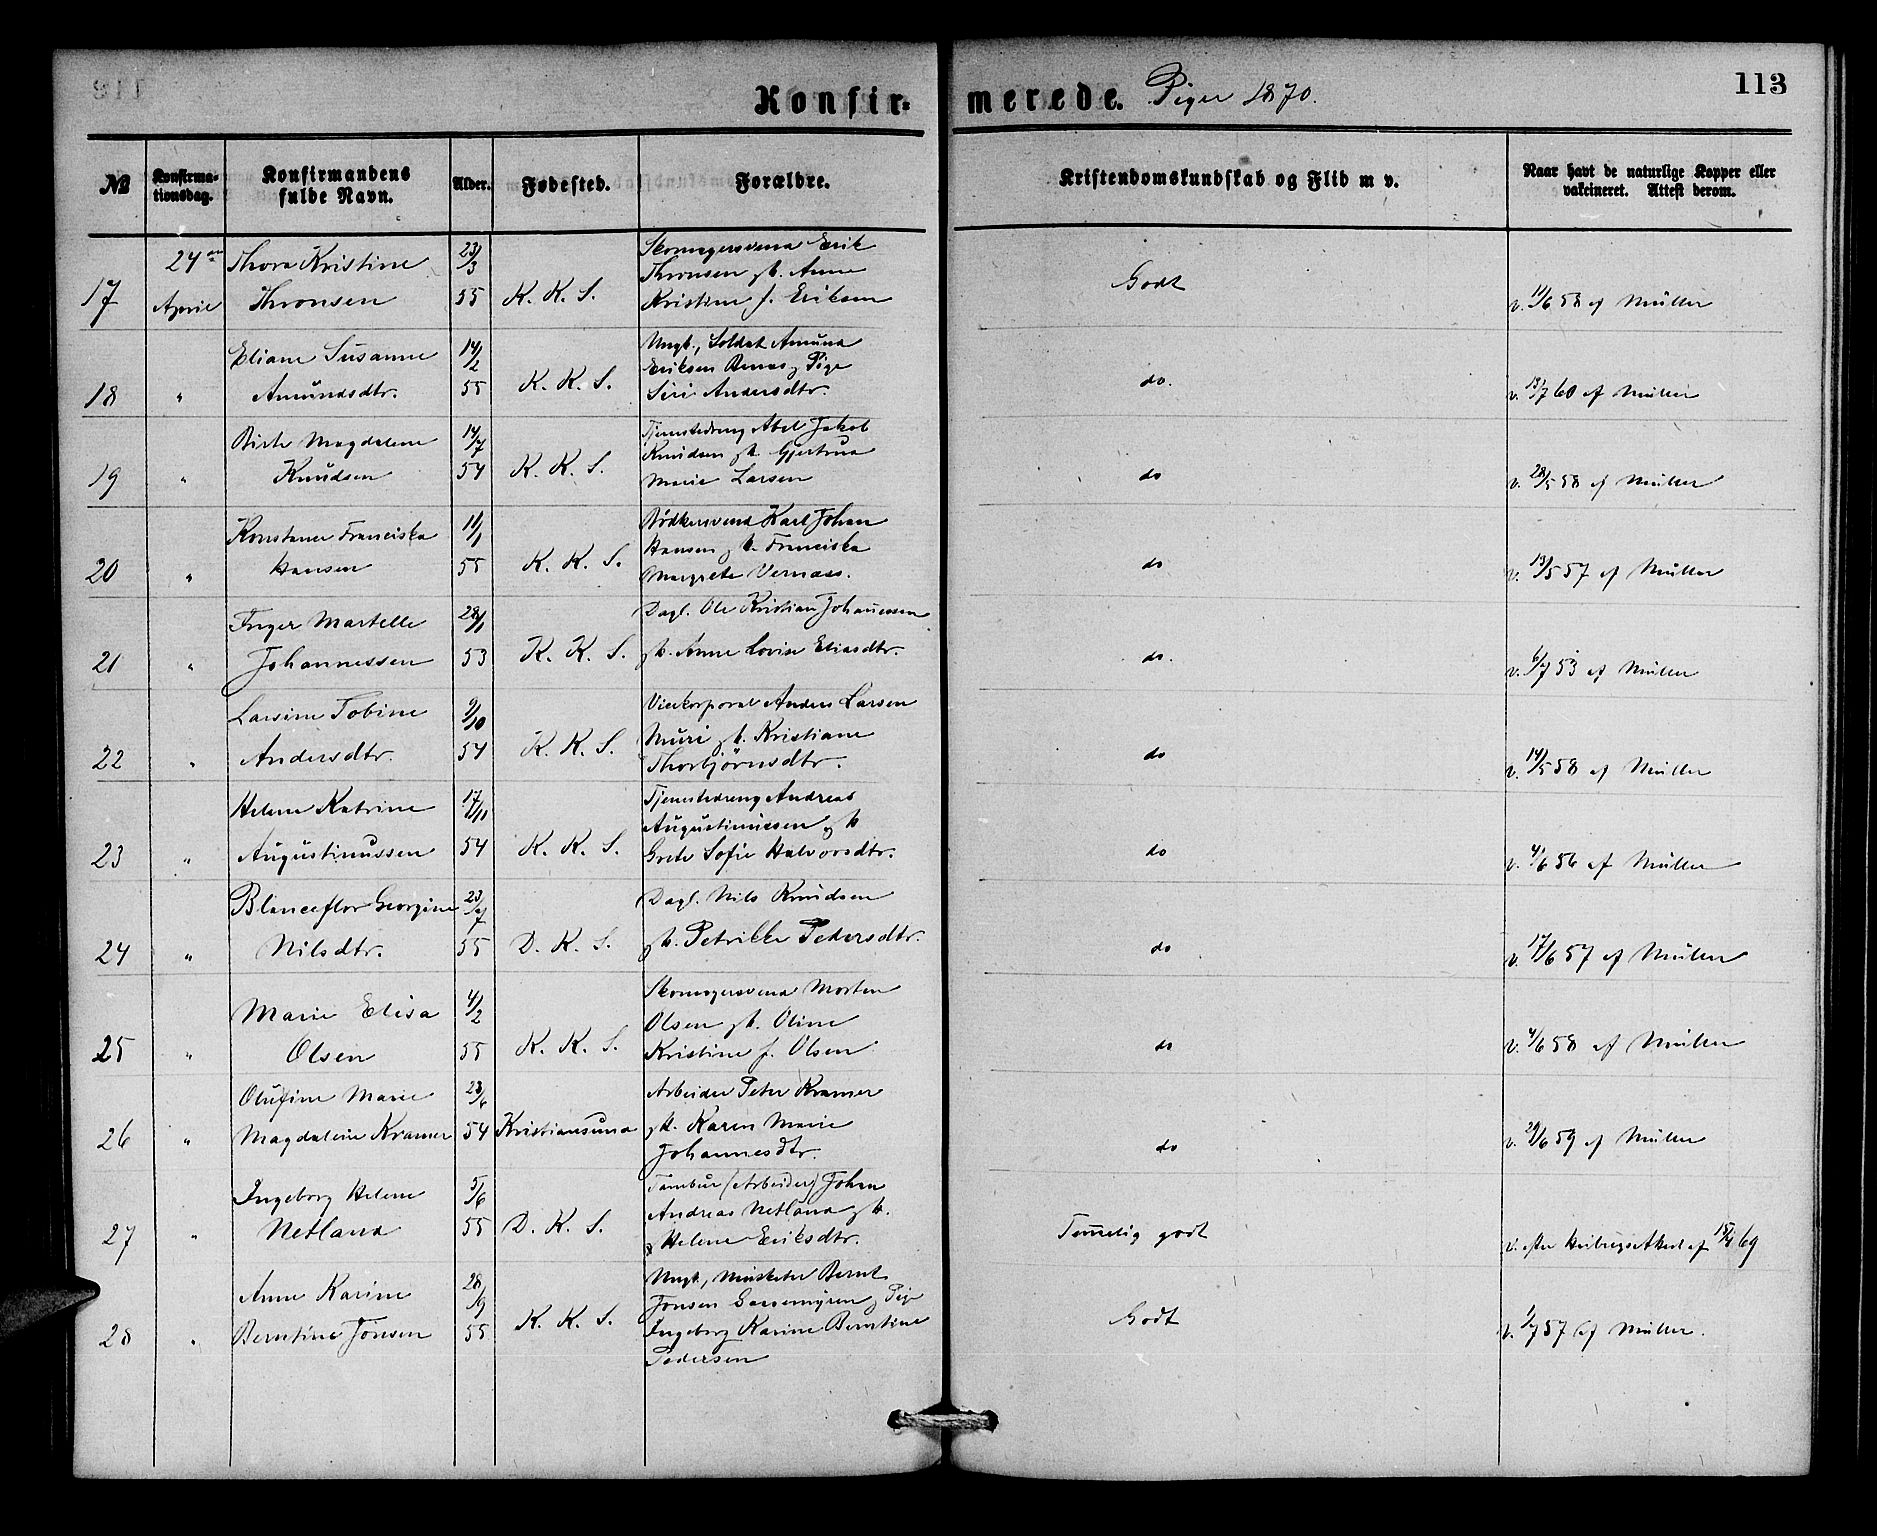 Konfir-
merede. Piger 1870.
113
№
Konfirma-
tionsdag.
Konfirmandens
fulde Navn.
Alder.
Fødested.
Forældre.
Kristendomskundskab og Flid m v.
Naar havt de naturlige Kopper eller
vakcineret. Attest derom.
17
24
April
Thora Kristine
Thronsen
23/3
55
K. K. S.
Skomagersvend Erik
Thronsen gh. Anne
Kristine f. Eriksen
Godt
v. 11/6 58 af Müller
18
"
Eliane Susanne
Amundsdtr.
14/2
55
K. K. S.
Ungk., Soldat Amund
Eriksen Pige
Siri Andersdtr.
do.
v. 13/7 60 af Müller
19
"
Birte Magdalene
Knudsen
14/7
54
K. K. S.
Tjenestedreng Abel Jakob
Knudsen gh. Gjertrud
Marie Larsen
do
v. 28/5 58 af Müller
20
"
Konstance Franciska
Hansen
11/1
55
K. K. S.
Bødkersvend Karl Johan
Hansen gh. Franciska
Margrete Vernaas.
do
v. 13/5 57 af Müller
21
"
Inger Martelle
Johannessen
28/1
53
K. K. S.
Dagl. Ole Kristian Johanessen
gh. Anne Lovise Eliasdtr.
do.
v. 6/7 53 af Müller
22
"
Larsine Tobine
Andersdtr.
9/10
54
K. K. S.
Vicekorporal Anders Larsen
Muri gh. Kristiane
Thorbjörnsdtr.
do
v. 14/5 58 af Müller
23
"
Helene Katrine
Augustinussen
17/11
54
K. K. S.
Tjenestedreng Andreas
Augustinussen gh
Grete Sofie Halvorsdtr.
do
v. 4/6 56 af Müller
24
"
Blanceflor Georgine
Nilsdtr.
23/7
55
D. K. S.
Dagl. Nils Knudsen
gh. Petrikke Pedersdtr.
do
v. 17/6 57 af Müller
25
"
Marie Elisa
Olsen
4/2
55
K. K. S.
Skomagersvend Morten
Olsen gh. Oline
Kristine f. Olsen
do
v. 4/6 58 af Müller
26
"
Olufine Marie
Magdalene Kramer
23/6
54
Kristiansund
Arbeider Peter Kramer
gh. Karen Marie
Johannesdtr.
do
v. 29/6 59 af Müller
27
"
Ingeborg Helene
Netland
5/6
55
D. K. S.
Tambur (Arbeider) Johan
Andreas Netland gh.
Helene Eriksdtr.
Temelig godt
v. efter af 15/4 69
28
"
Anne Karine
Berntine Jonsen
28/9
55
K. K. S.
Ungk., Musketer Bernt
Jonsen Pige
Ingeborg Karine Berntine
Pedersen
Godt
v. 1/7 57 af Müller.